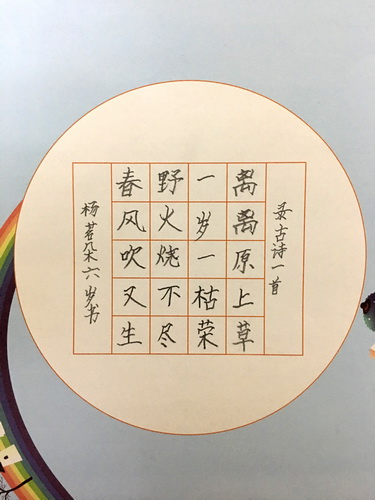 录古诗一首
离离原上草
一岁一枯荣
野火烧不尽
春风吹又生
杨茗朵六岁书